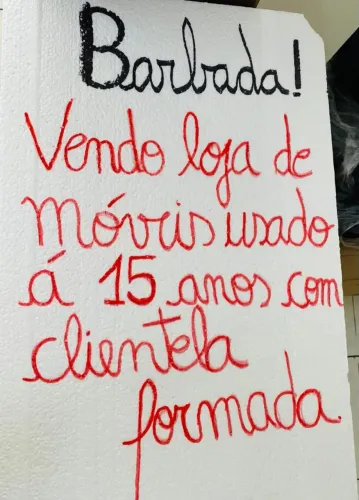 Barbada!
Vendo loja de
móveis usado
á 15 anos com
clientela
formada